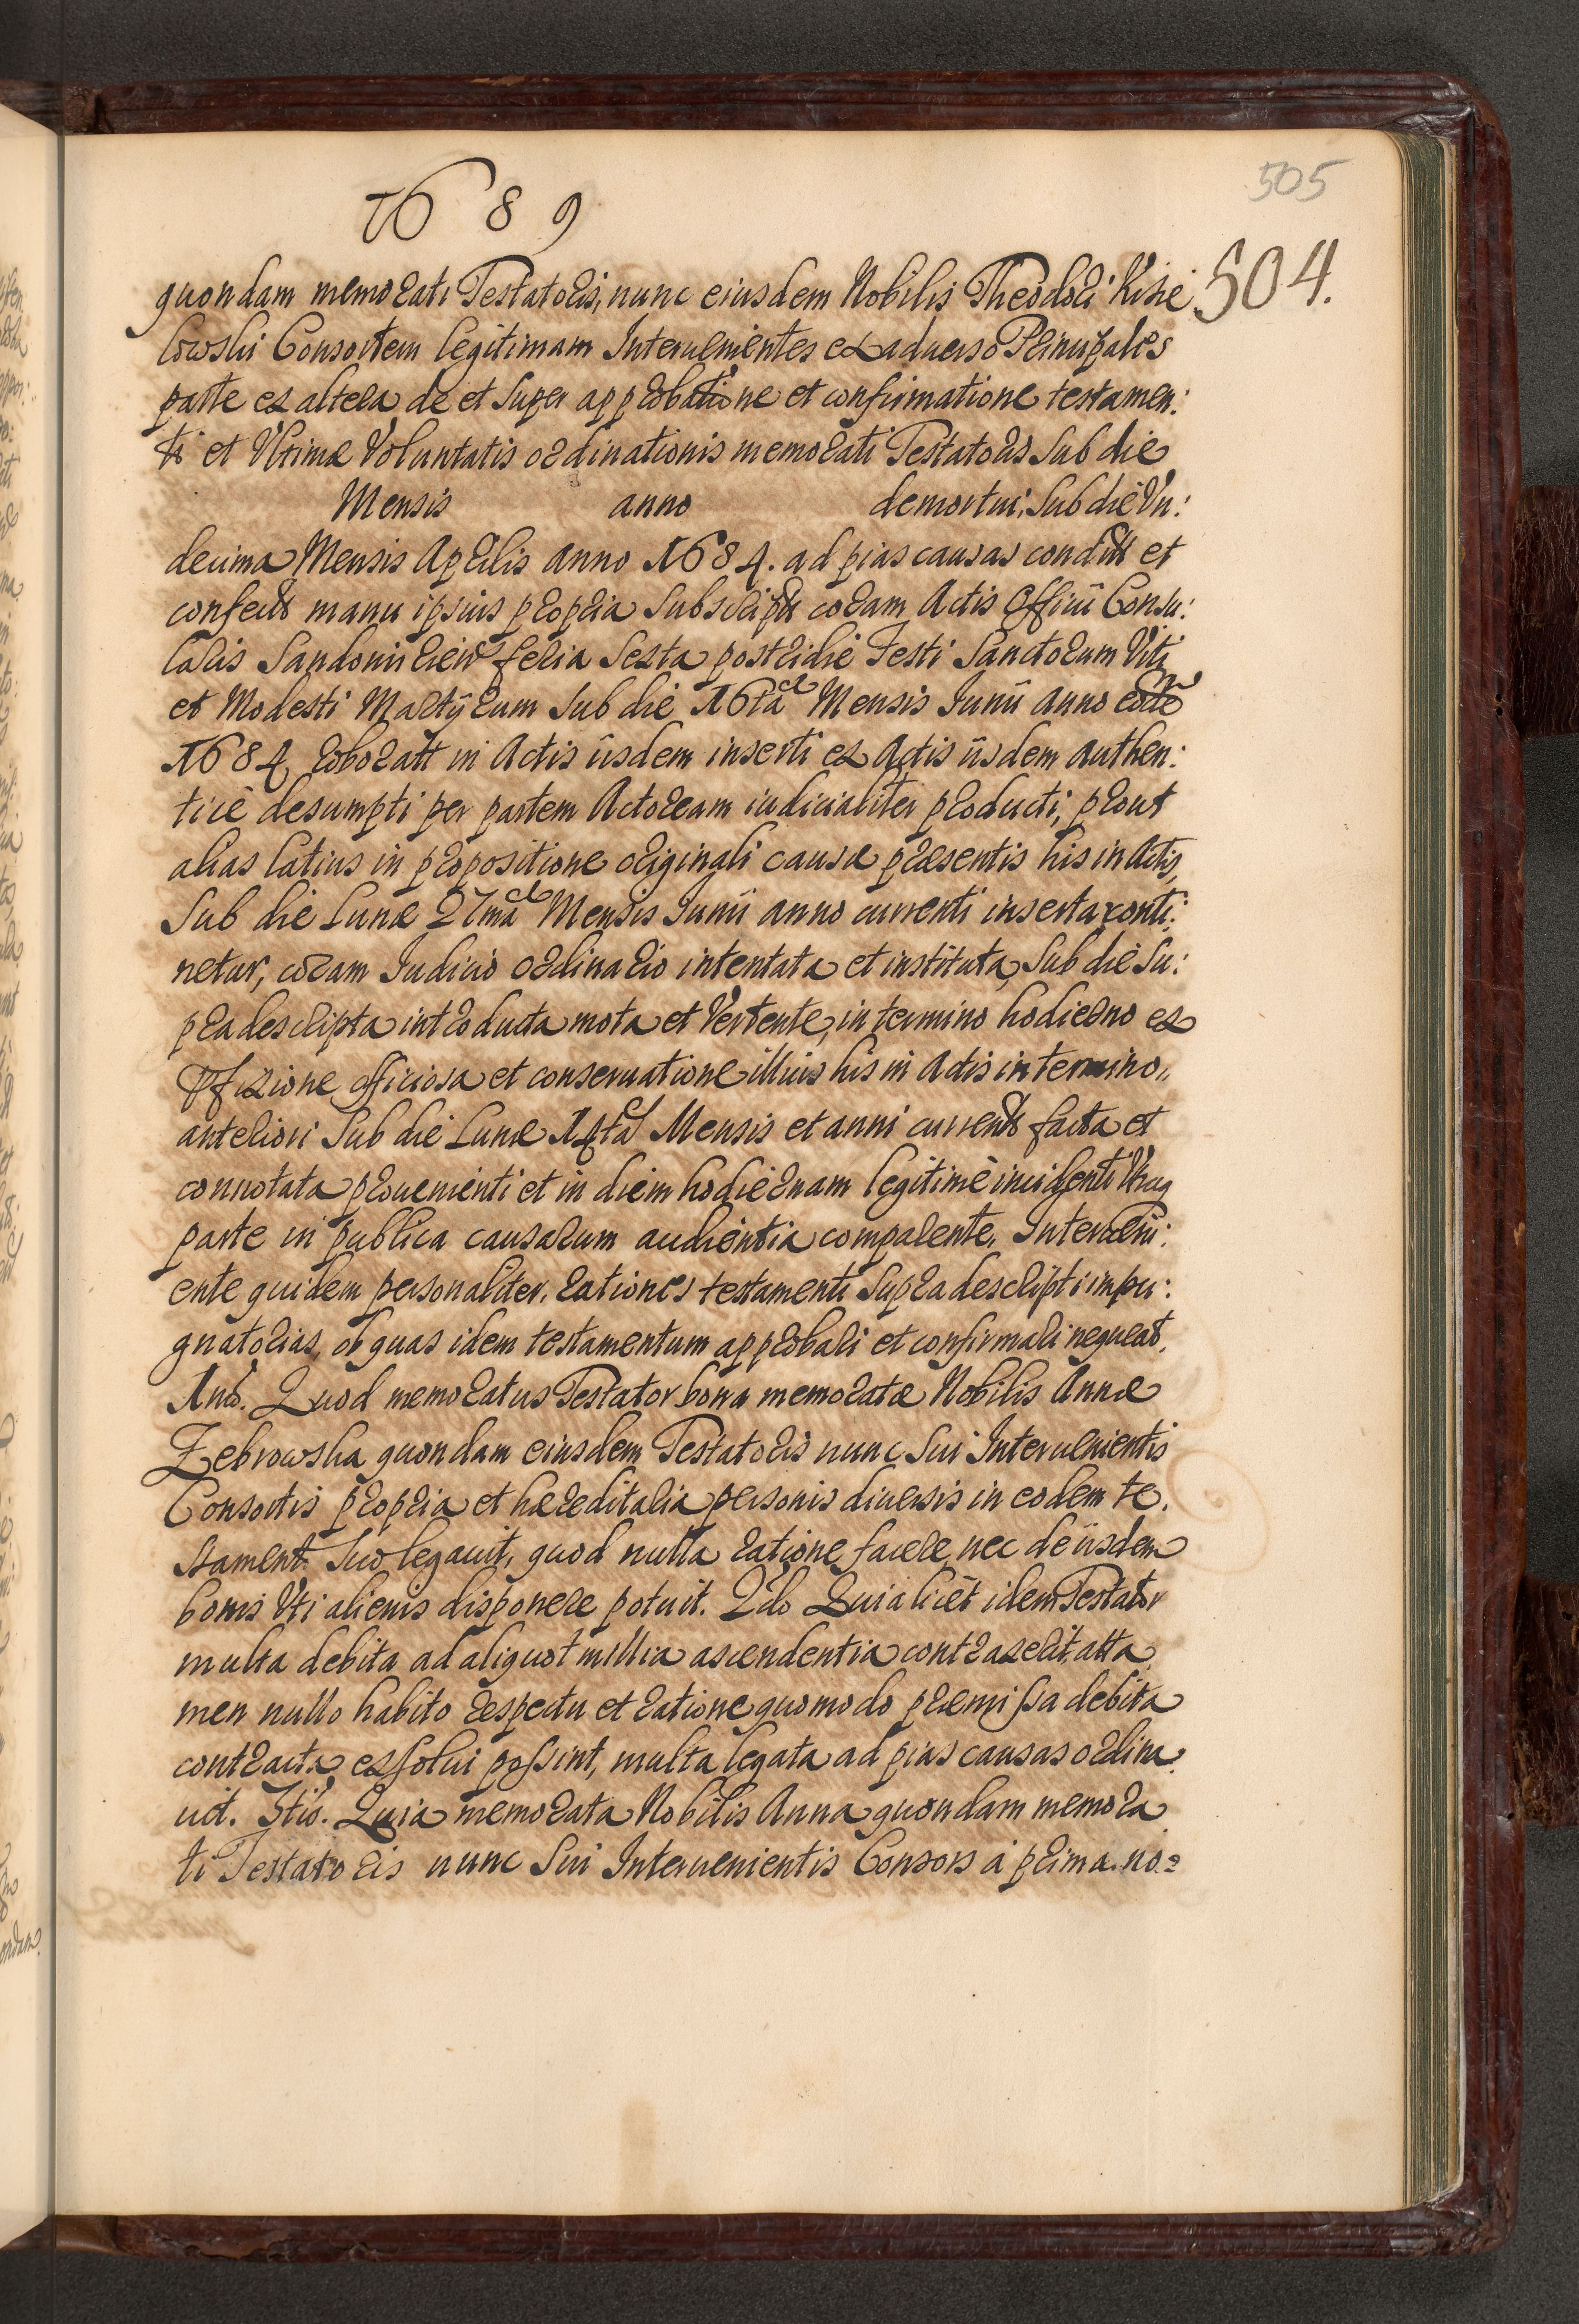 1689
505
504.
quondam memorati Testatoris, nunc eiusdem Nobilis Theodori Kisie
lowski Consortem legitimam Interuenientes ex aduerso Principales
parte ex altera de et super approbatione et confirmatione testamen:
ti et Vltimæ Voluntatis ordinationis memorati Testatoris Sub die
Mensis anno demortui, Sub die Vn:
decima Mensis Aprilis anno 1684. ad pias causas condit et
confect manu ipsius propria Subscript coram Actis Officii Consu:
laris Sandomirien feria Sexta postridie Festi Sanctorum Viti
et Modesti Martÿrum Sub die 16ta Mensis Iunii anno eodē
1684 roborat in Actis iisdem inserti ex Actis iisdem authen:
tice desumpti per partem Actoream iudicialiter producti, prout
alias latius in propositione originali causæ præsentis his in Actis,
Sub die Lunæ 27ma Mensis Iunii anno currenti inserta conti:
netur, coram Iudicio ordinario intentata et instituta, Sub die Su:
pra descripta introducta mota et Vertente, in termino hodierno ex
officiosa et conseruatione illius his in Actis in termino,,
anteriori Sub die Lunæ 14ta Mensis et anni current facta et
connotata prouenienti et in diem hodiernam legitime incidenti Vtraq
parte in publica causarum audientia comparente, Interueni:
ente quidem personaliter, rationes testamenti Supra descripti impu:
gnatorias, ob quas idem testamentum approbari et confirmari nequeat.
1mo. Quod memoratus Testator bona memoratæ Nobilis Annæ
Zebrowska quondam eiusdem Testatoris nunc Sui Interuenientis
Consortis propria et hæreditaria personis diuersis in eodem te,
stament Suo legauit, quod nulla ratione facere nec de iisdem
bonis Vti alienis disponere potuit. 2do Quia licet idem Testator
multa debita ad aliquot millia ascendentia contraxerit, atta,
men nullo habito respectu et ratione quomodo præmissa debita
contracta exsolui possint, multa legata ad pias causas ordina,
uit. 3tio. Quia memorata Nobilis Anna quondam memora,
ti Testatoris nunc Sui Interuenientis Consors a prima no: